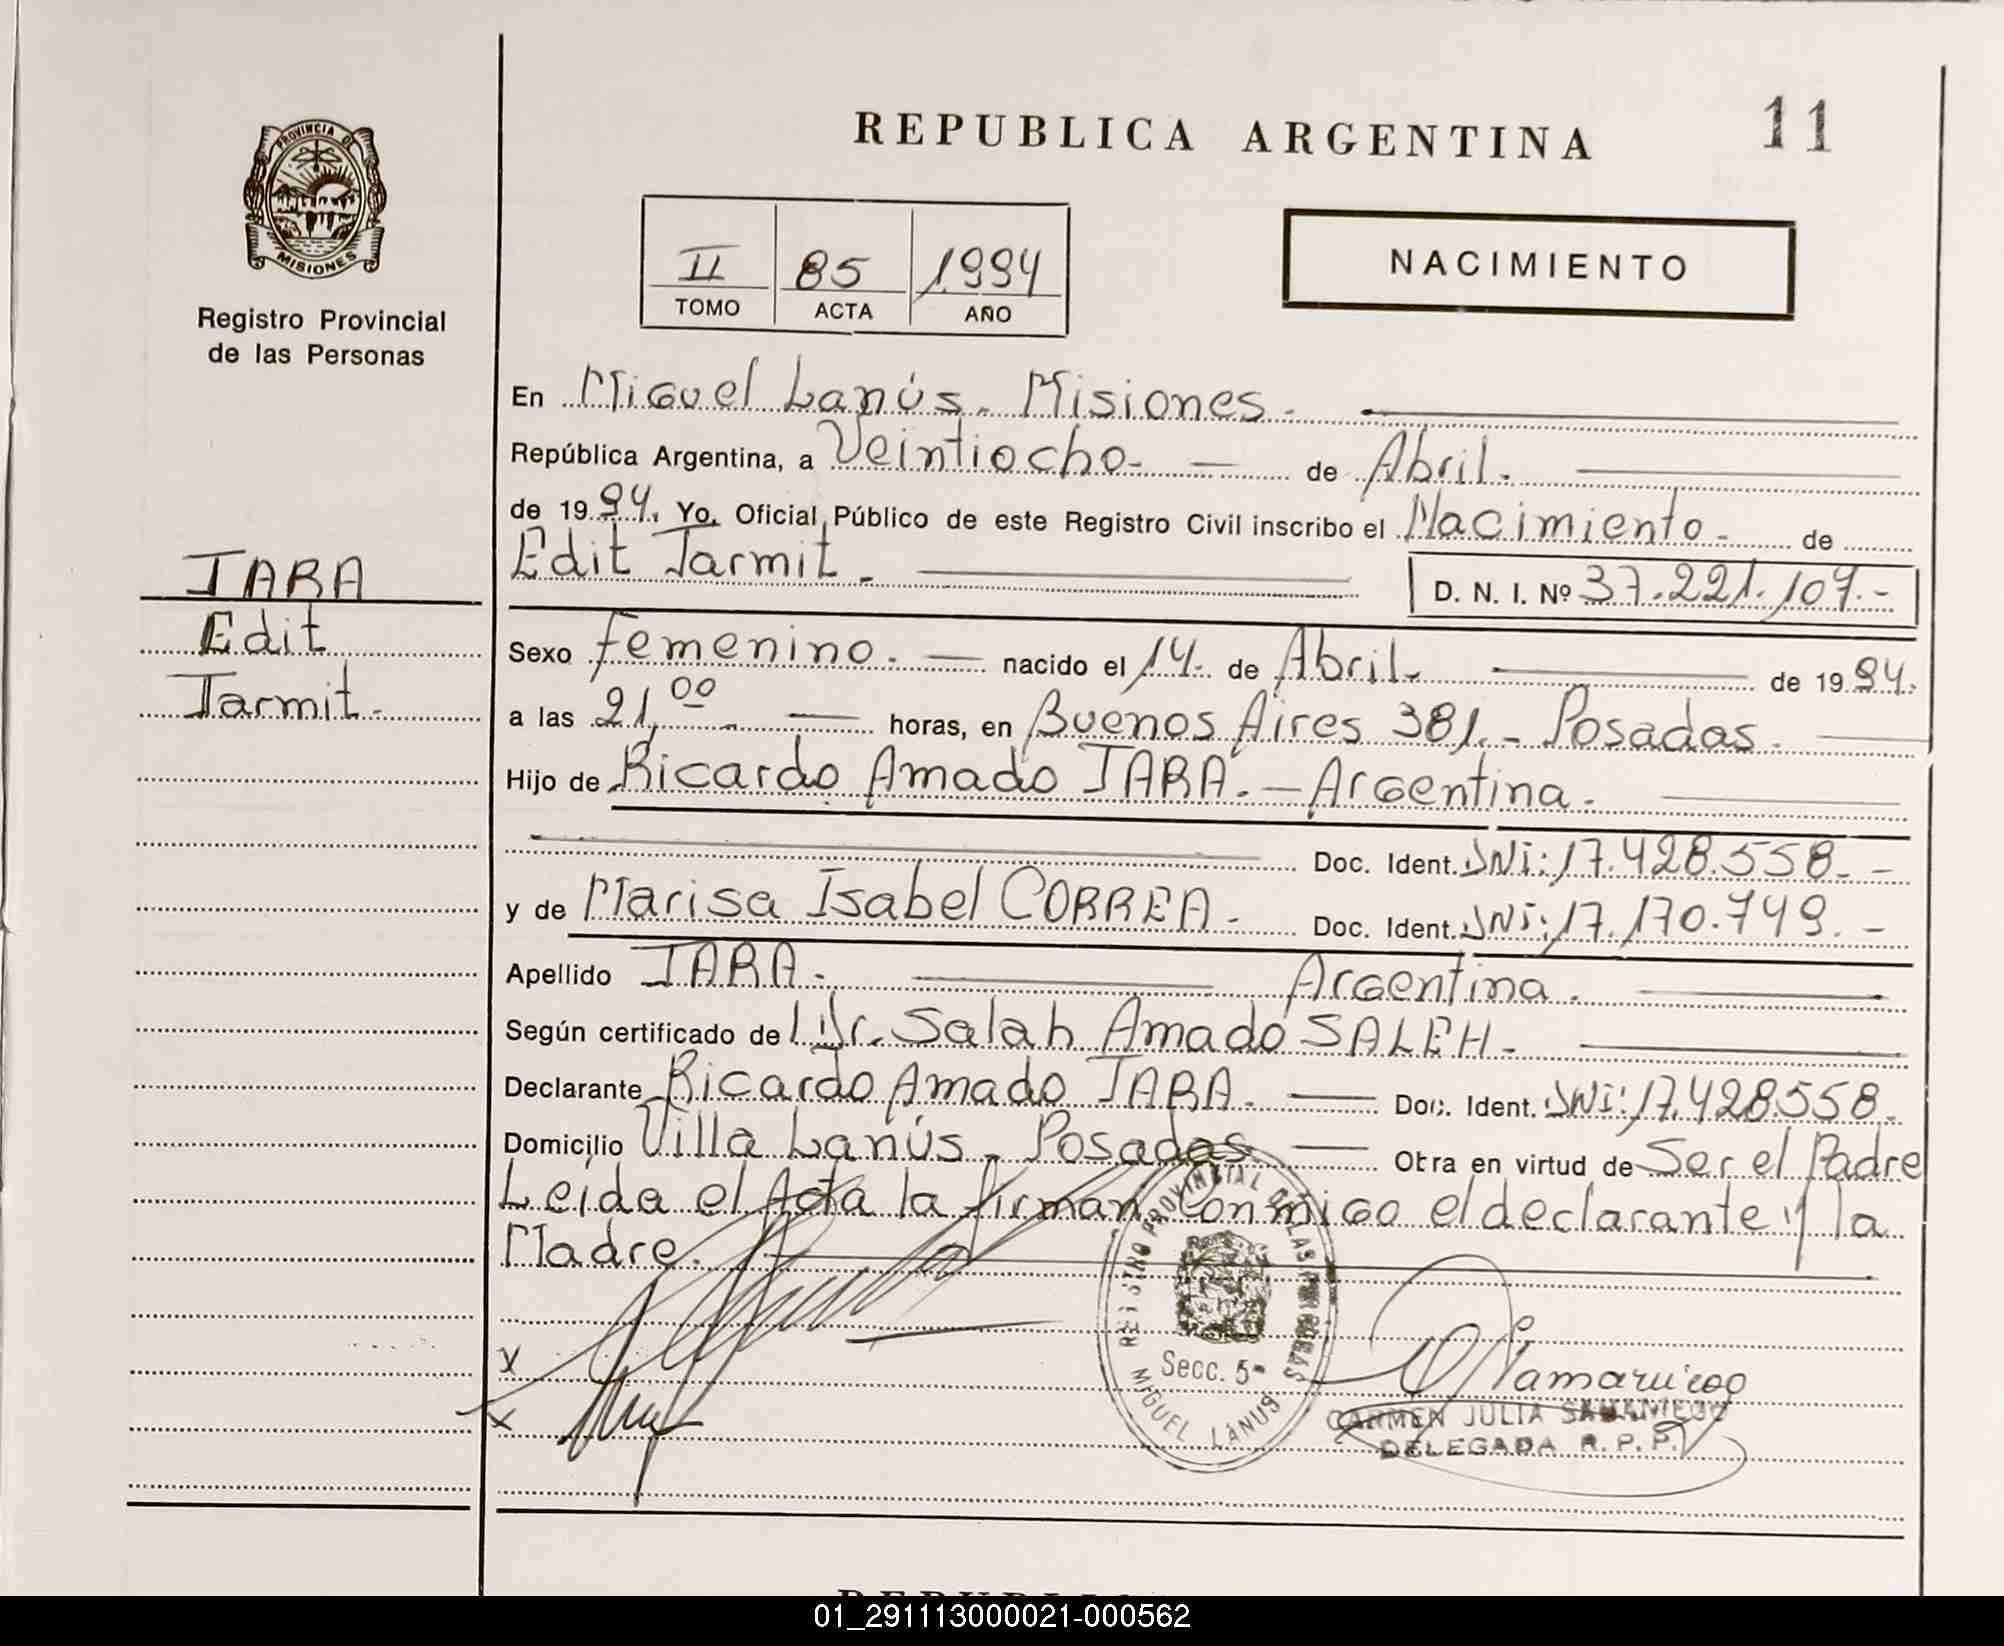 REPUBLICA ARGENTINA
11
PROVINCIA DE
MISIONES
Registro Provincial
de las Personas
II 85 1994
TOMO ACTA AÑO
NACIMIENTO
En Miguel Lanús - Misiones -
República Argentina, a Veintiocho - de Abril.
de 1994. Yo, Oficial Público de este Registro Civil inscribo el Nacimiento - de
Edit Jarmit -
D. N. I. Nº 37.221.107.-
JARA
Edit
Jarmit -
Sexo femenino. - nacido el 14. de Abril. de 1994.
a las 21,00 - horas, en Buenos Aires 381. - Posadas.
Hijo de Ricardo Amado JARA. - Argentina.
Doc. Ident. DNI: 17.428.558. -
y de Marisa Isabel CORREA. - Doc. Ident. DNI: 17.170.749. -
Apellido JARA. - Argentina.
Según certificado de Dr. Salah Amado SALEH -
Declarante Ricardo Amado JARA. Doc. Ident. DNI: 17.428.558.
Domicilio Villa Lanús - Posadas Otra en virtud de Ser el Padre
Leida el Acta la firman Conmigo el declarante y la
Madre.
x
x
REGISTRO PROVINCIAL DE LAS PERSONAS
Secc. 5ª
MIGUEL LANUS
CARMEN JULIA SAMANIEGO
DELEGADA R. P. P.
01_291113000021-000562